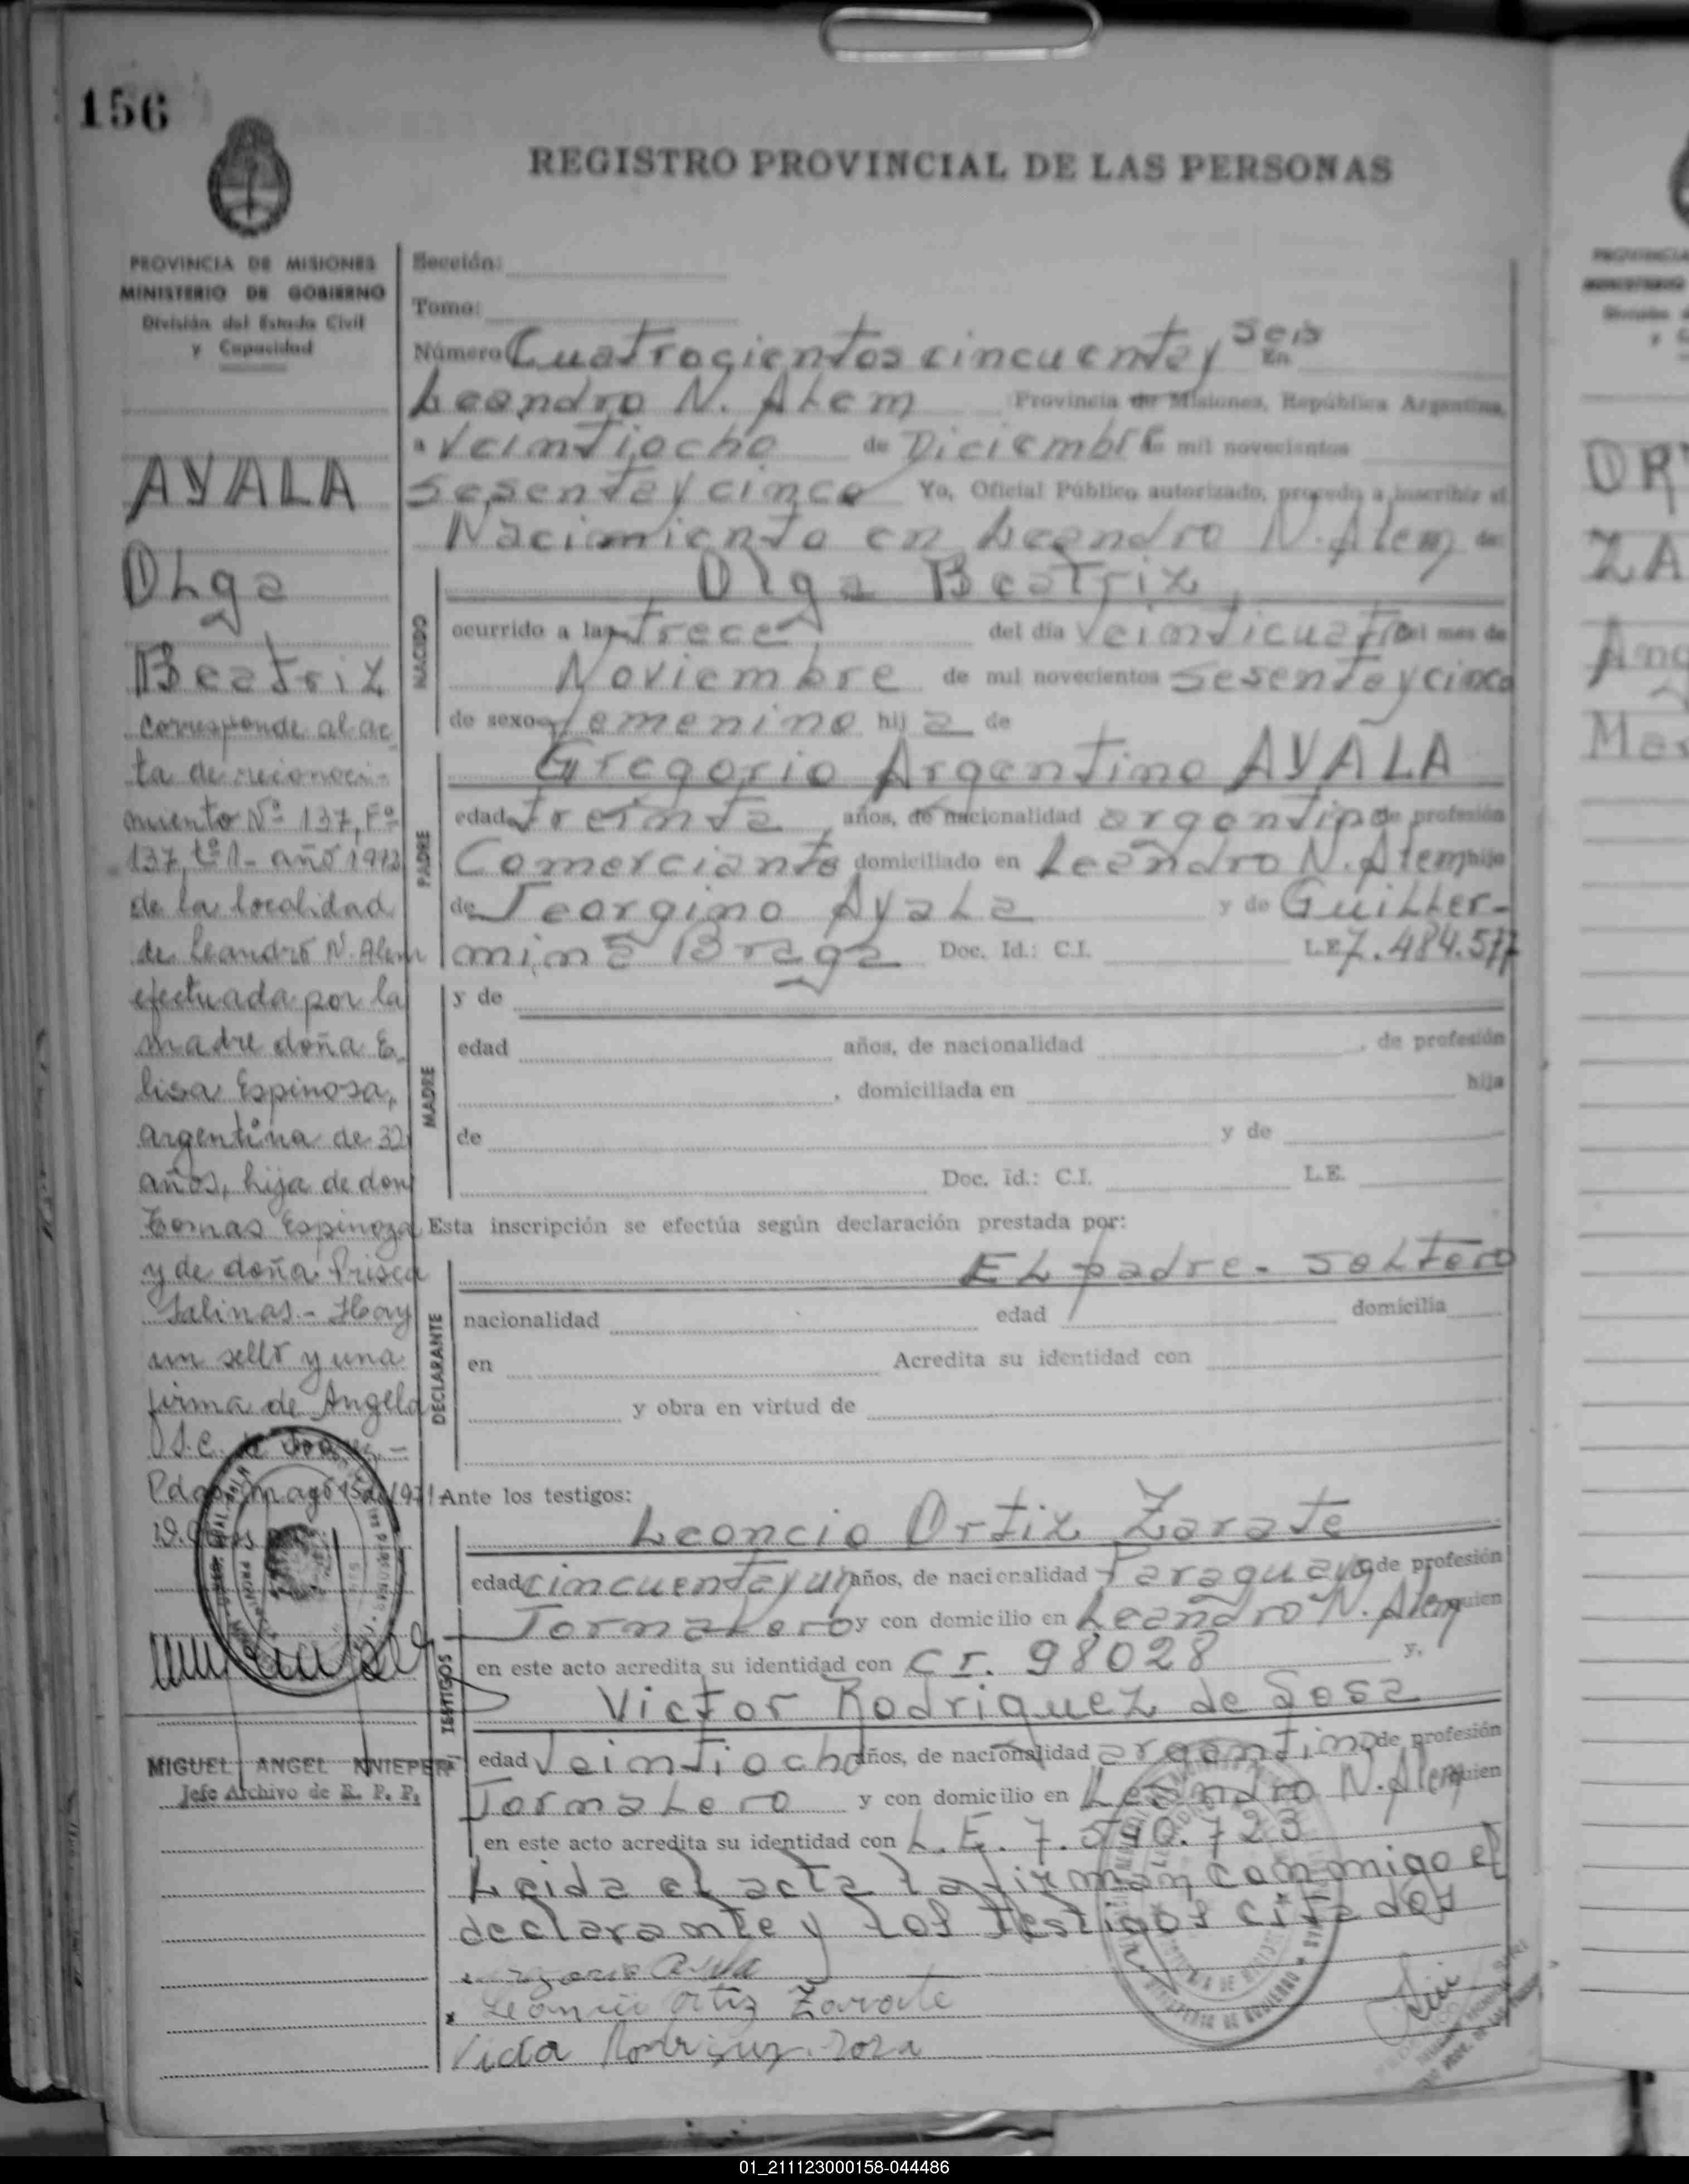 156
REGISTRO PROVINCIAL DE LAS PERSONAS
PROVINCIA DE MISIONES
MINISTERIO DE GOBIERNO
División del Estado Civil
y Capacidad
AYALA
Olga
Beatriz
Corresponde al ac
ta de reconoci-
miento Nº 137, Fº
137, tº 1- año 1972
de la localidad
de Leandro N. Alem
efectuada por la
madre doña E
lisa Espinosa,
argentina de 32
años, hija de don
Tomas Espinoza
y de doña Prisca
Salinas - Hay
un sello y una
firma de Angela
MIGUEL ANGEL KNIEPER
Jefe Archivo de R. P. P.
Sección:
Tomo:
Número Cuatrocientos cincuenta y seis En
Leandro N. Alem Provincia de Misiones, República Argentina,
a Veintiocho de Diciembre mil novecientos
sesenta y cinco Yo, Oficial Público autorizado, procedo a inscribir el
Nacimiento en Leandro N. Alem de:
NACIDO
Olga Beatriz
ocurrido a las trece del día Veinticuatro del mes de
Noviembre de mil novecientos sesenta y cinco
de sexo femenino hij a de
PADRE
Gregorio Argentino AYALA
edad treinta años, de nacionalidad argentino de profesión
Comerciante domiciliado en Leandro N. Alem hijo
de Jeorgino Ayala y de Guiller-
mina Braga Doc. Id.: C.I. L.E. 7.484.577
MADRE
y de
edad años, de nacionalidad , de profesión
, domiciliada en hija
de y de
Doc. Id.: C.I. L.E.
Esta inscripción se efectúa según declaración prestada por:
DECLARANTE
El padre. soltero
nacionalidad edad domicilia
en Acredita su identidad con
y obra en virtud de
Ante los testigos:
TESTIGOS
Leoncio Ortiz Zarate
edad cincuenta y un años, de nacionalidad Paraguayo de profesión
Jornalero y con domicilio en Leandro N. Alem quien
en este acto acredita su identidad con C I. 98028 y,
Victor Rodriguez de Sosa
edad Veintiocho años, de nacionalidad argentino de profesión
Jornalero y con domicilio en Leandro N. Alem quien
en este acto acredita su identidad con L.E. 7.590.723
Leida el acta la firman conmigo el
declarante y los testigos citados
Leoncio Ortiz Zarate
01_211123000158-044486